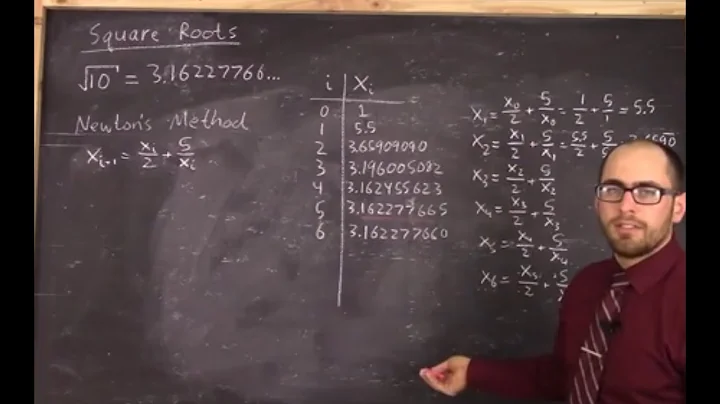 Square Roots
√10 = 3.16227766...
Newton's Method
x_{i+1} = x_i/2 + 5/x_i
i | X_i
0 | 1
1 | 5.5
2 | 3.65909090
3 | 3.196005082
4 | 3.162455623
5 | 3.162277665
6 | 3.162277660
X_1 = x_0/2 + 5/x_0 = 1/2 + 5/1 = 5.5
X_2 = x_1/2 + 5/x_1 = 5.5/2 + 5/
X_3 = x_2/2 + 5/x_2
X_4 = x_3/2 + 5/x_3
X_5 = x_4/2 + 5/x_4
X_6 = x_5/2 + 5/